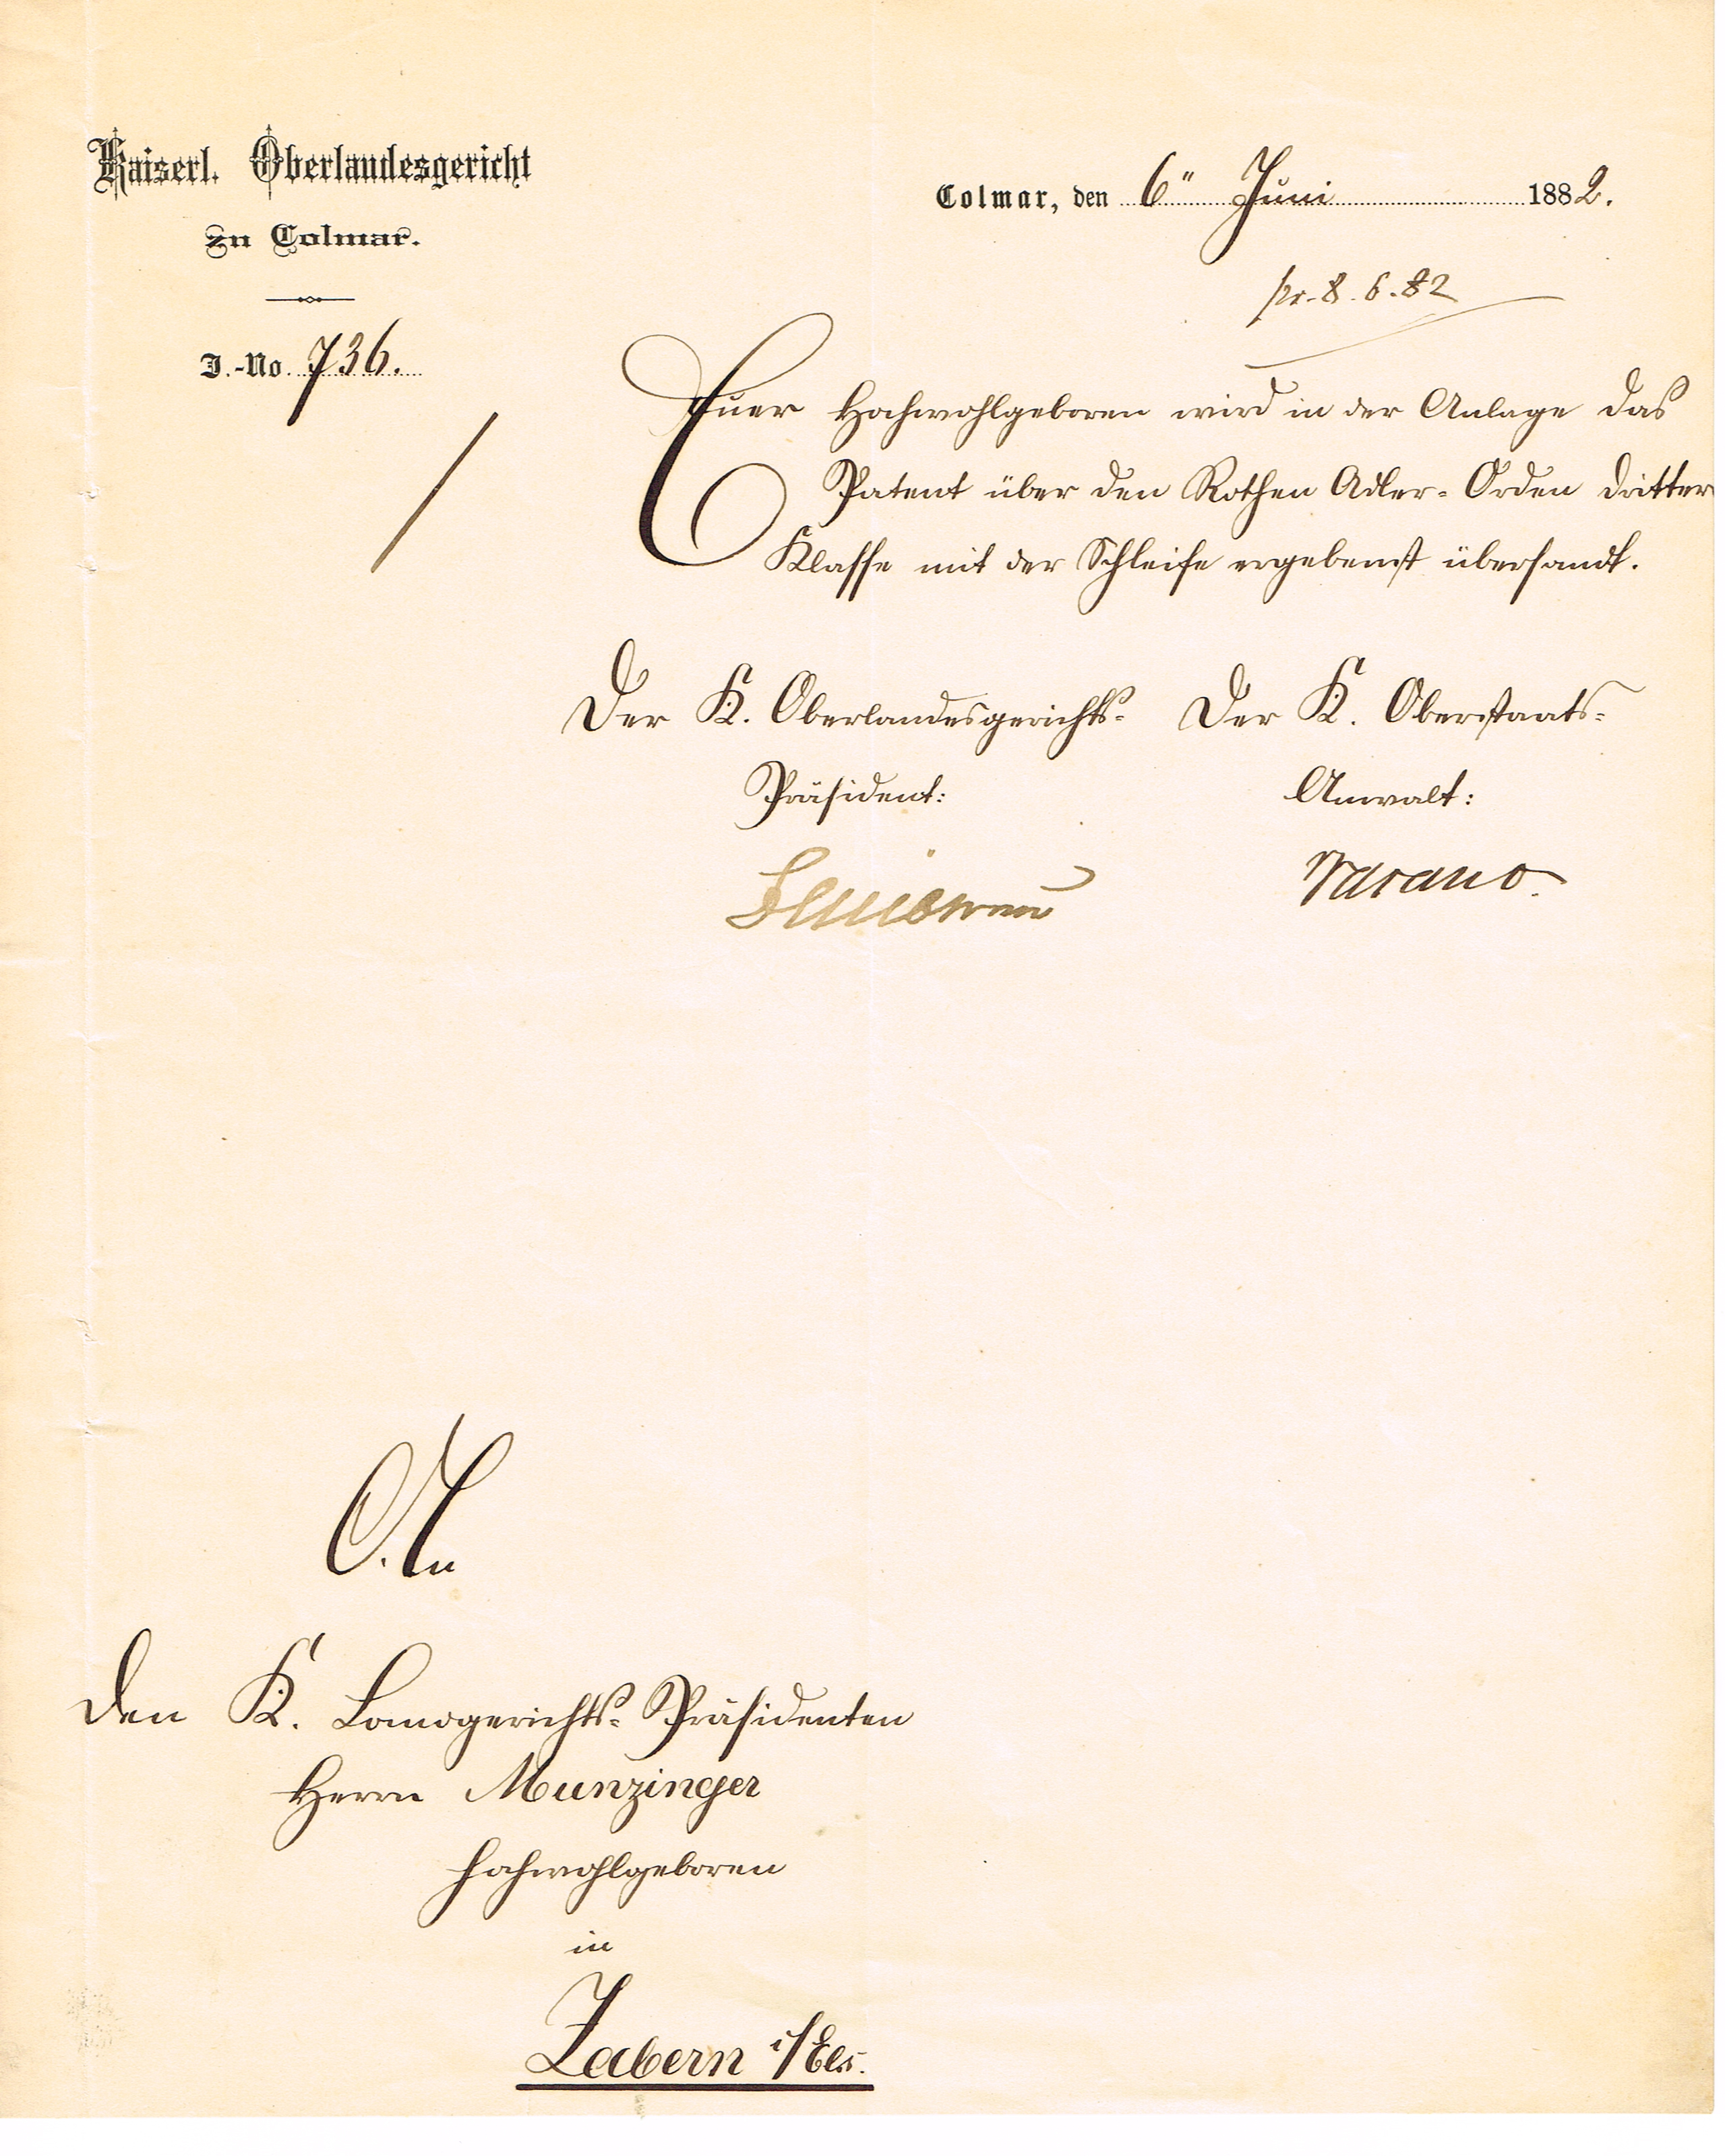 Kaiserl. Oberlandesgericht
zu Colmar.
J.-No. 736.
Colmar, den 6" Juni 1882.
pr. 8. 6. 82
Euer Hochwohlgeboren wird in der Anlage das
Patent über den Rothen Adler-Orden dritter
Klasse mit der Schleife ergebenst übersandt.
Der K. Oberlandesgerichts-
Präsident:
Der K. Oberstaats-
Anwalt:
An
den K. Landgerichts-Präsidenten
Herrn Munzinger
Hochwohlgeboren
in
Zabern i/Els.